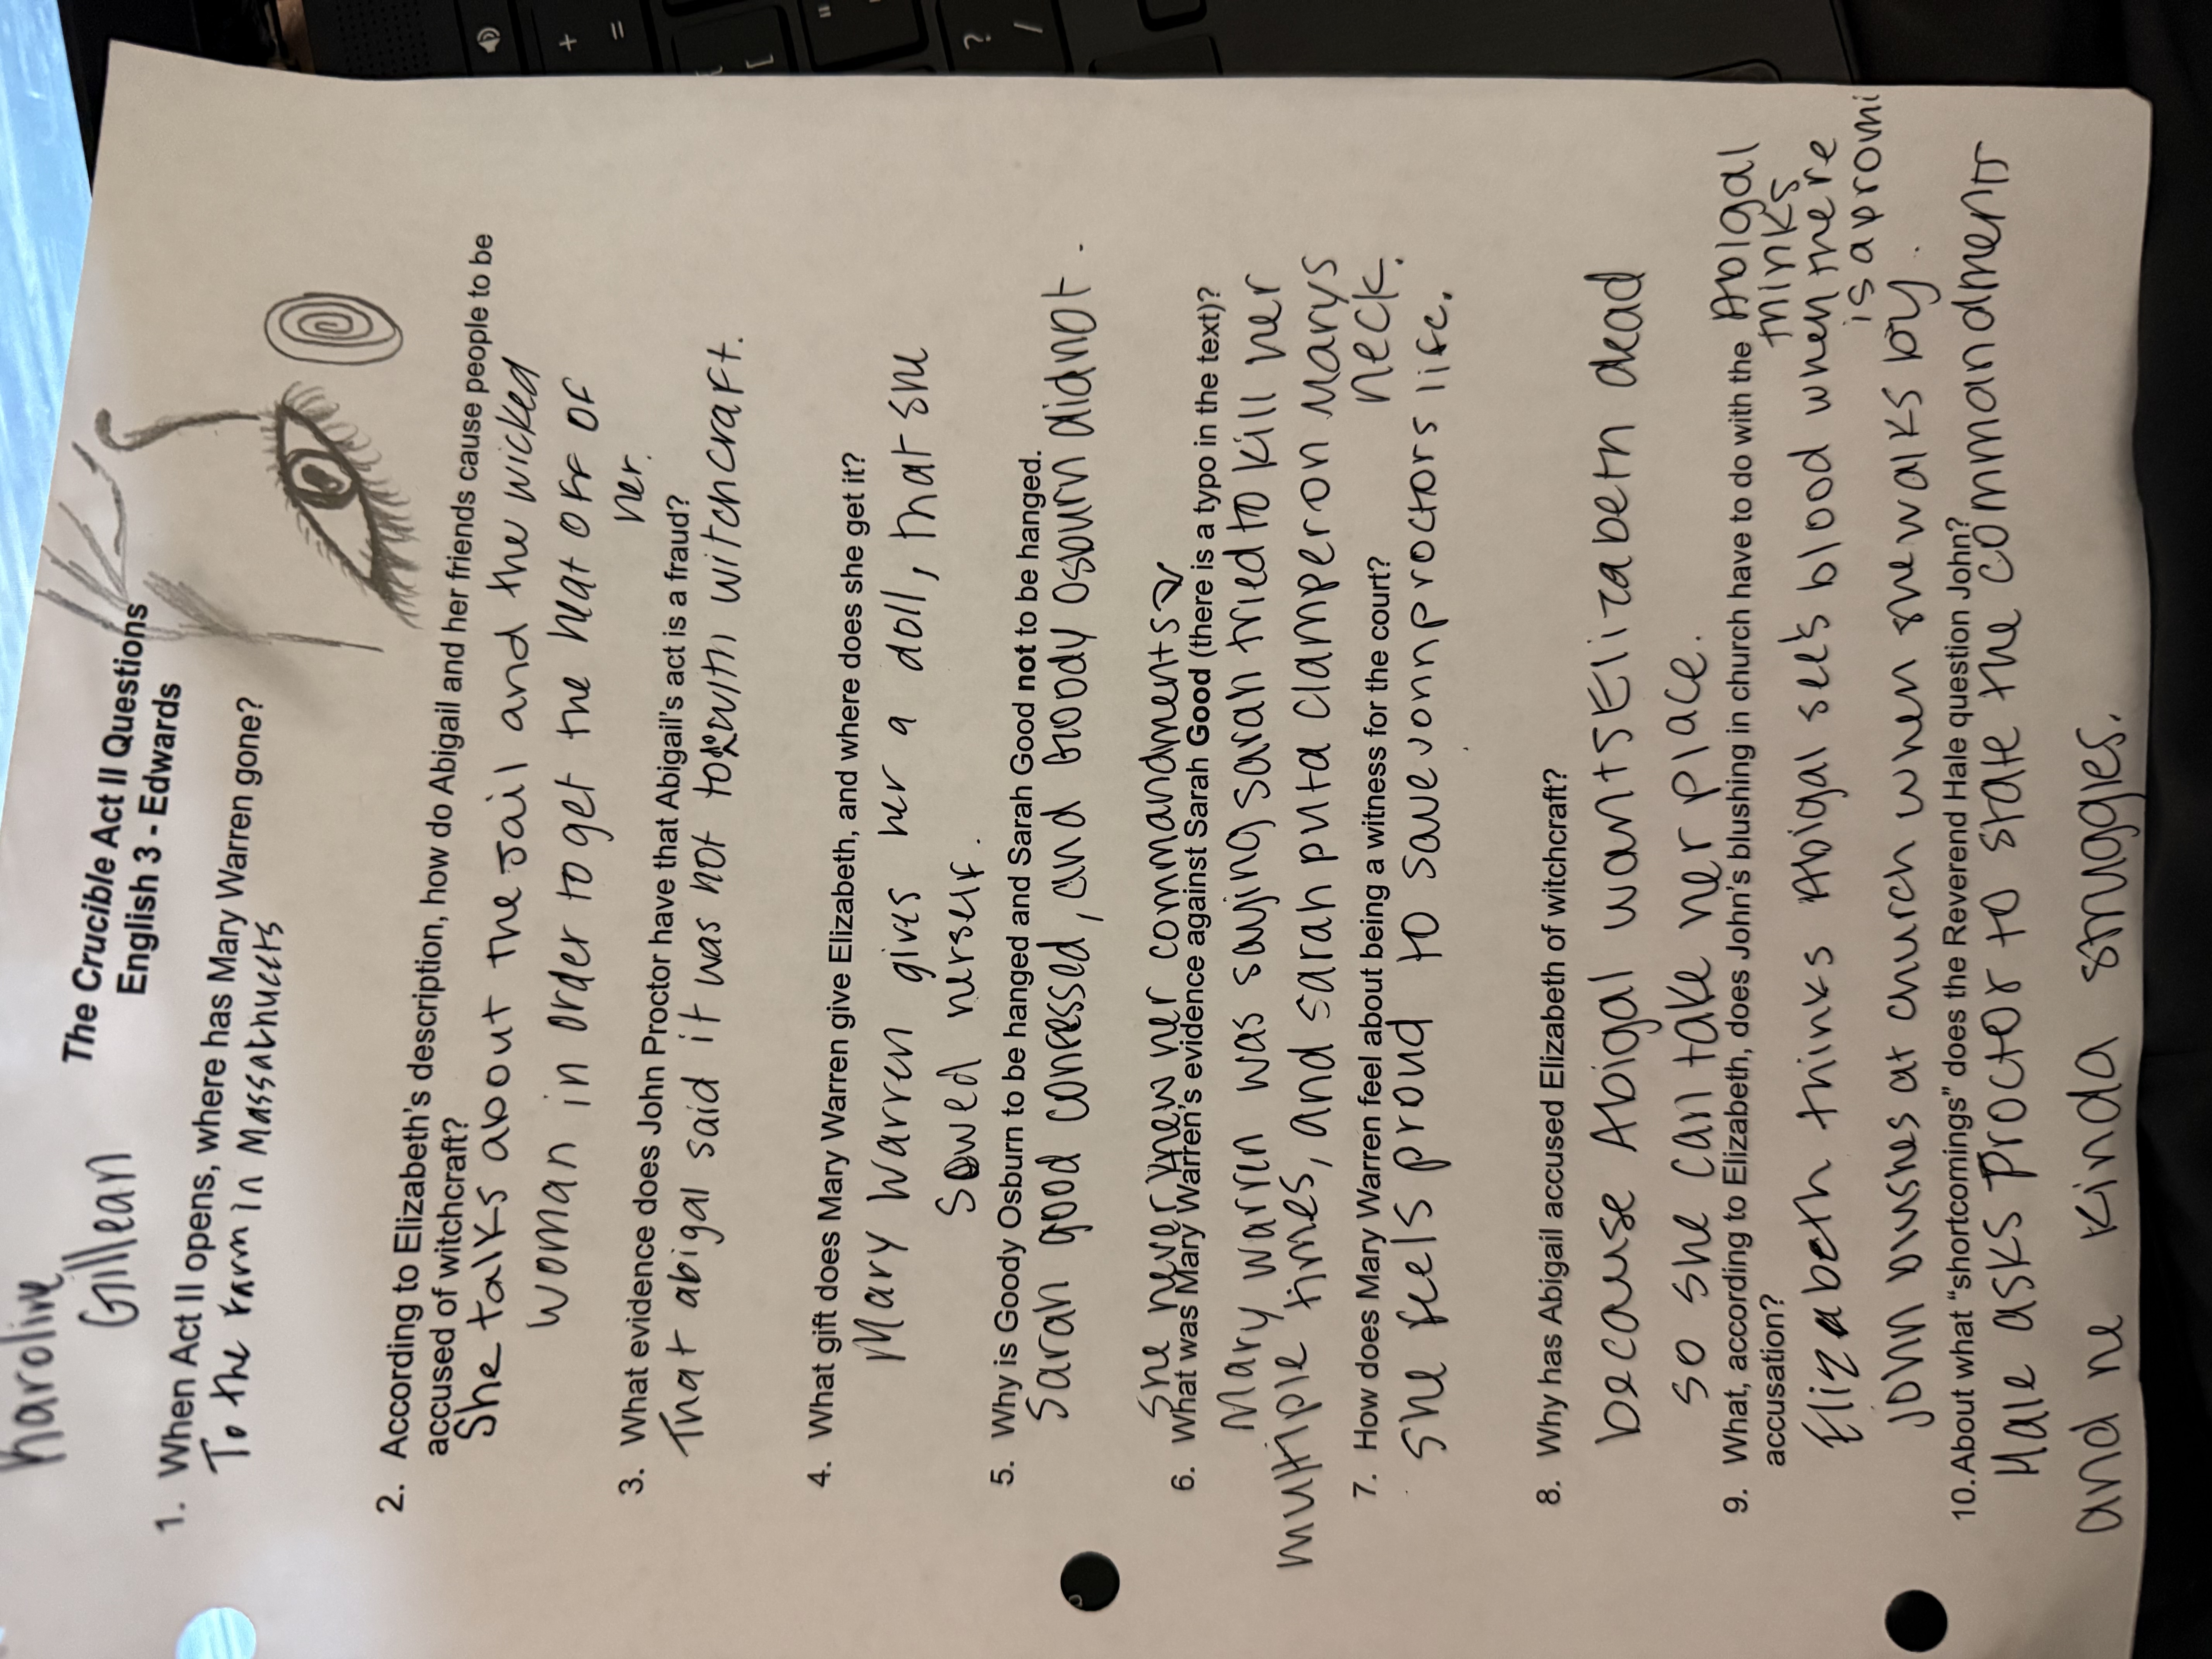 Karoline
Gillean
The Crucible Act II Questions
English 3 - Edwards
1. When Act II opens, where has Mary Warren gone?
To the farm in Massathucets
2. According to Elizabeth's description, how do Abigail and her friends cause people to be
accused of witchcraft?
She talks about the Jail and the wicked
woman in order to get the heat off of
her.
3. What evidence does John Proctor have that Abigail's act is a fraud?
That abigal said it was not to with witchcraft.
4. What gift does Mary Warren give Elizabeth, and where does she get it?
Mary Warren gives her a doll, that she
Sowed herself.
5. Why is Goody Osburn to be hanged and Sarah Good not to be hanged.
Sarah good confessed, and Goody Osburn didnot.
She never knew her commandments
6. What was Mary Warren's evidence against Sarah Good (there is a typo in the text)?
Mary warren was saying sarah tried to kill her
multiple times, and sarah put a clamper on Marys
neck.
7. How does Mary Warren feel about being a witness for the court?
She feels proud to save Jonn proctors life.
8. Why has Abigail accused Elizabeth of witchcraft?
because Abigal wants Elizabeth dead
so she can take her place.
9. What, according to Elizabeth, does John's blushing in church have to do with the
accusation?
Abigal
thinks
Elizabeth thinks Abigal sees blood when there
is a promi
John blushes at church when she walks by.
10. About what "shortcomings" does the Reverend Hale question John?
Hale asks Proctor to state the commandments
and he kinda struggles.